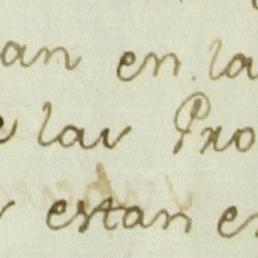 an en la
e las Pro
estan en